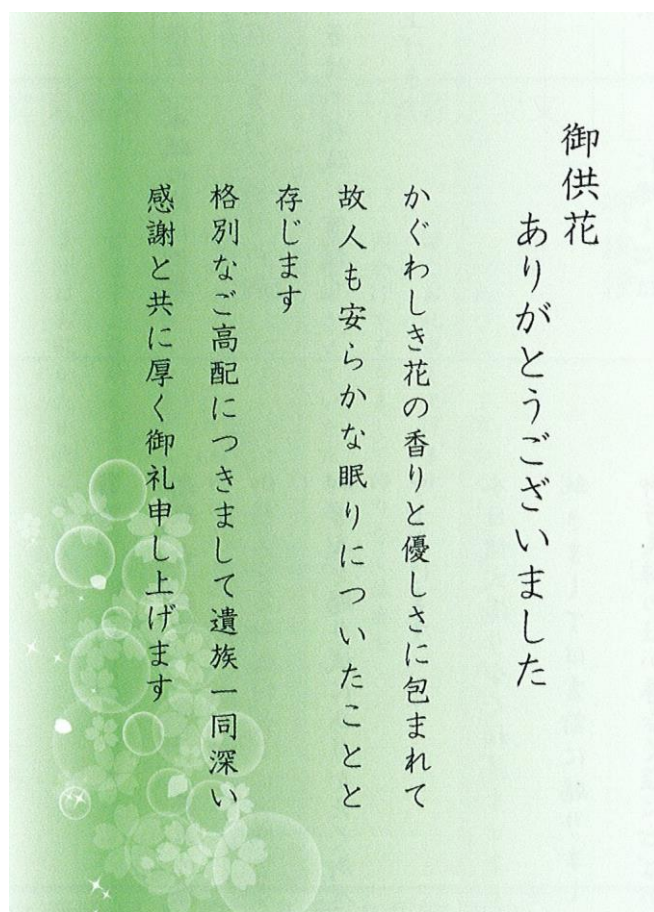 御供花
ありがとうございました
かぐわしき花の香りと優しさに包まれて
故人も安らかな眠りについたことと
存じます
格別なご高配につきまして遺族一同深い
感謝と共に厚く御礼申し上げます